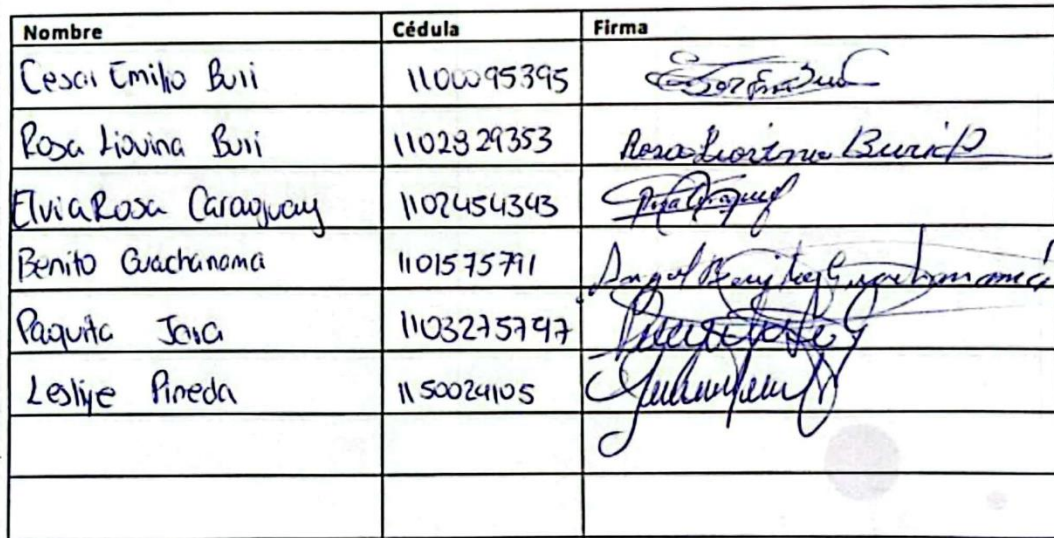 Nombre Cédula Firma
Cesar Emilio Buri 1100095395
Rosa Liovina Buri 1102829353 Rosa Liovina Buri P
Elvia Rosa Caraguay 1102454343
Benito Guachanama 1101575791 Angel Benito Guachanamá
Paquita Jara 1103275797
Leslye Pineda 1150024105